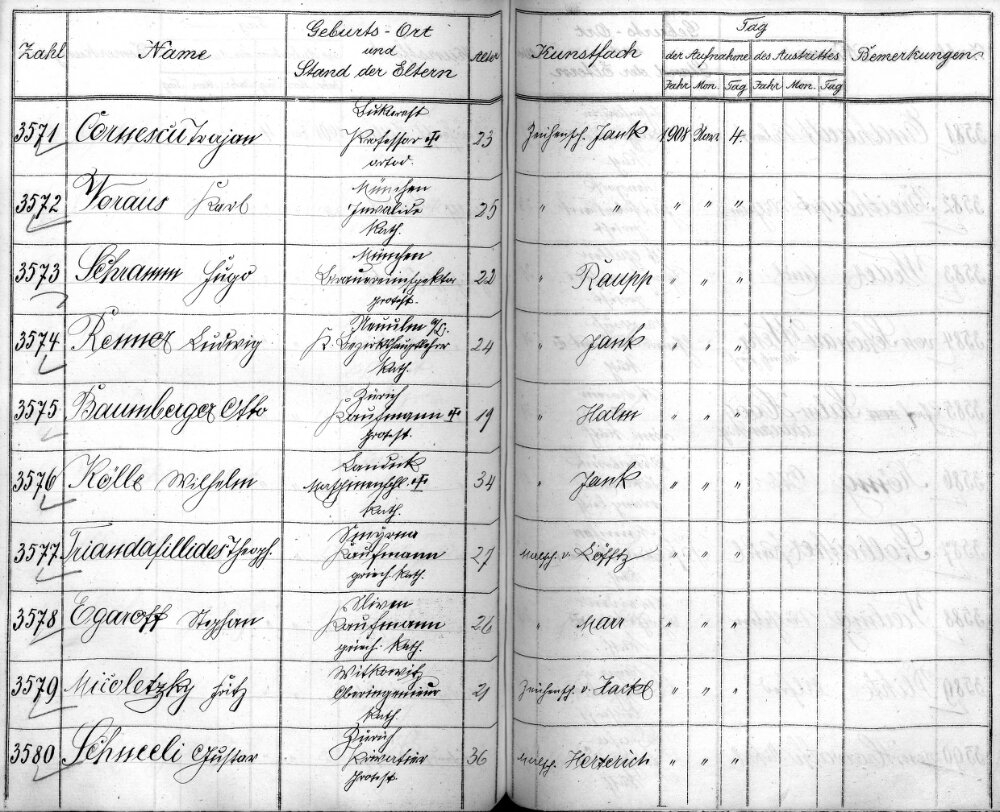 Zahl Name Geburts-Ort und Stand der Eltern Alter Kunstfach Tag der Aufnahme des Austrittes Bemerkungen
Jahr Mon. Tag Jahr Mon. Tag
Bukarest
3571 Cornescu Trajan Professor † 23 Zeichensch. Jank 1908 Nov. 4.
ortod.
München
3572 Voraus Karl Invalide 25 " " " " "
kath.
München
3573 Schramm Hugo Brauereiinspektor 22 " Raupp " " "
protest.
Neuulm a/D.
3574 Renner Ludwig K. Bezirkshauptlehrer 24 " Jank " " "
kath.
Zürich
3575 Baumberger Otto Kaufmann † 19 " Halm " " "
protest.
Landeck
3576 Kölle Wilhelm † 34 " Jank " " "
kath.
Smyrna
3577 Triandafillides Theoph. Kaufmann 27 Malsch. v. Löfftz " " "
griech. kath.
Sliven
3578 Egaroff Stephan Kaufmann 26 " Marr " " "
griech. kath.
Witkowitz
3579 Micoletzky Fritz Oberingenieur 21 Zeichensch. v. Hackl " " "
kath.
Zürich
3580 Schneeli Gustav Privatier 36 Malsch. Herterich " " "
protest.